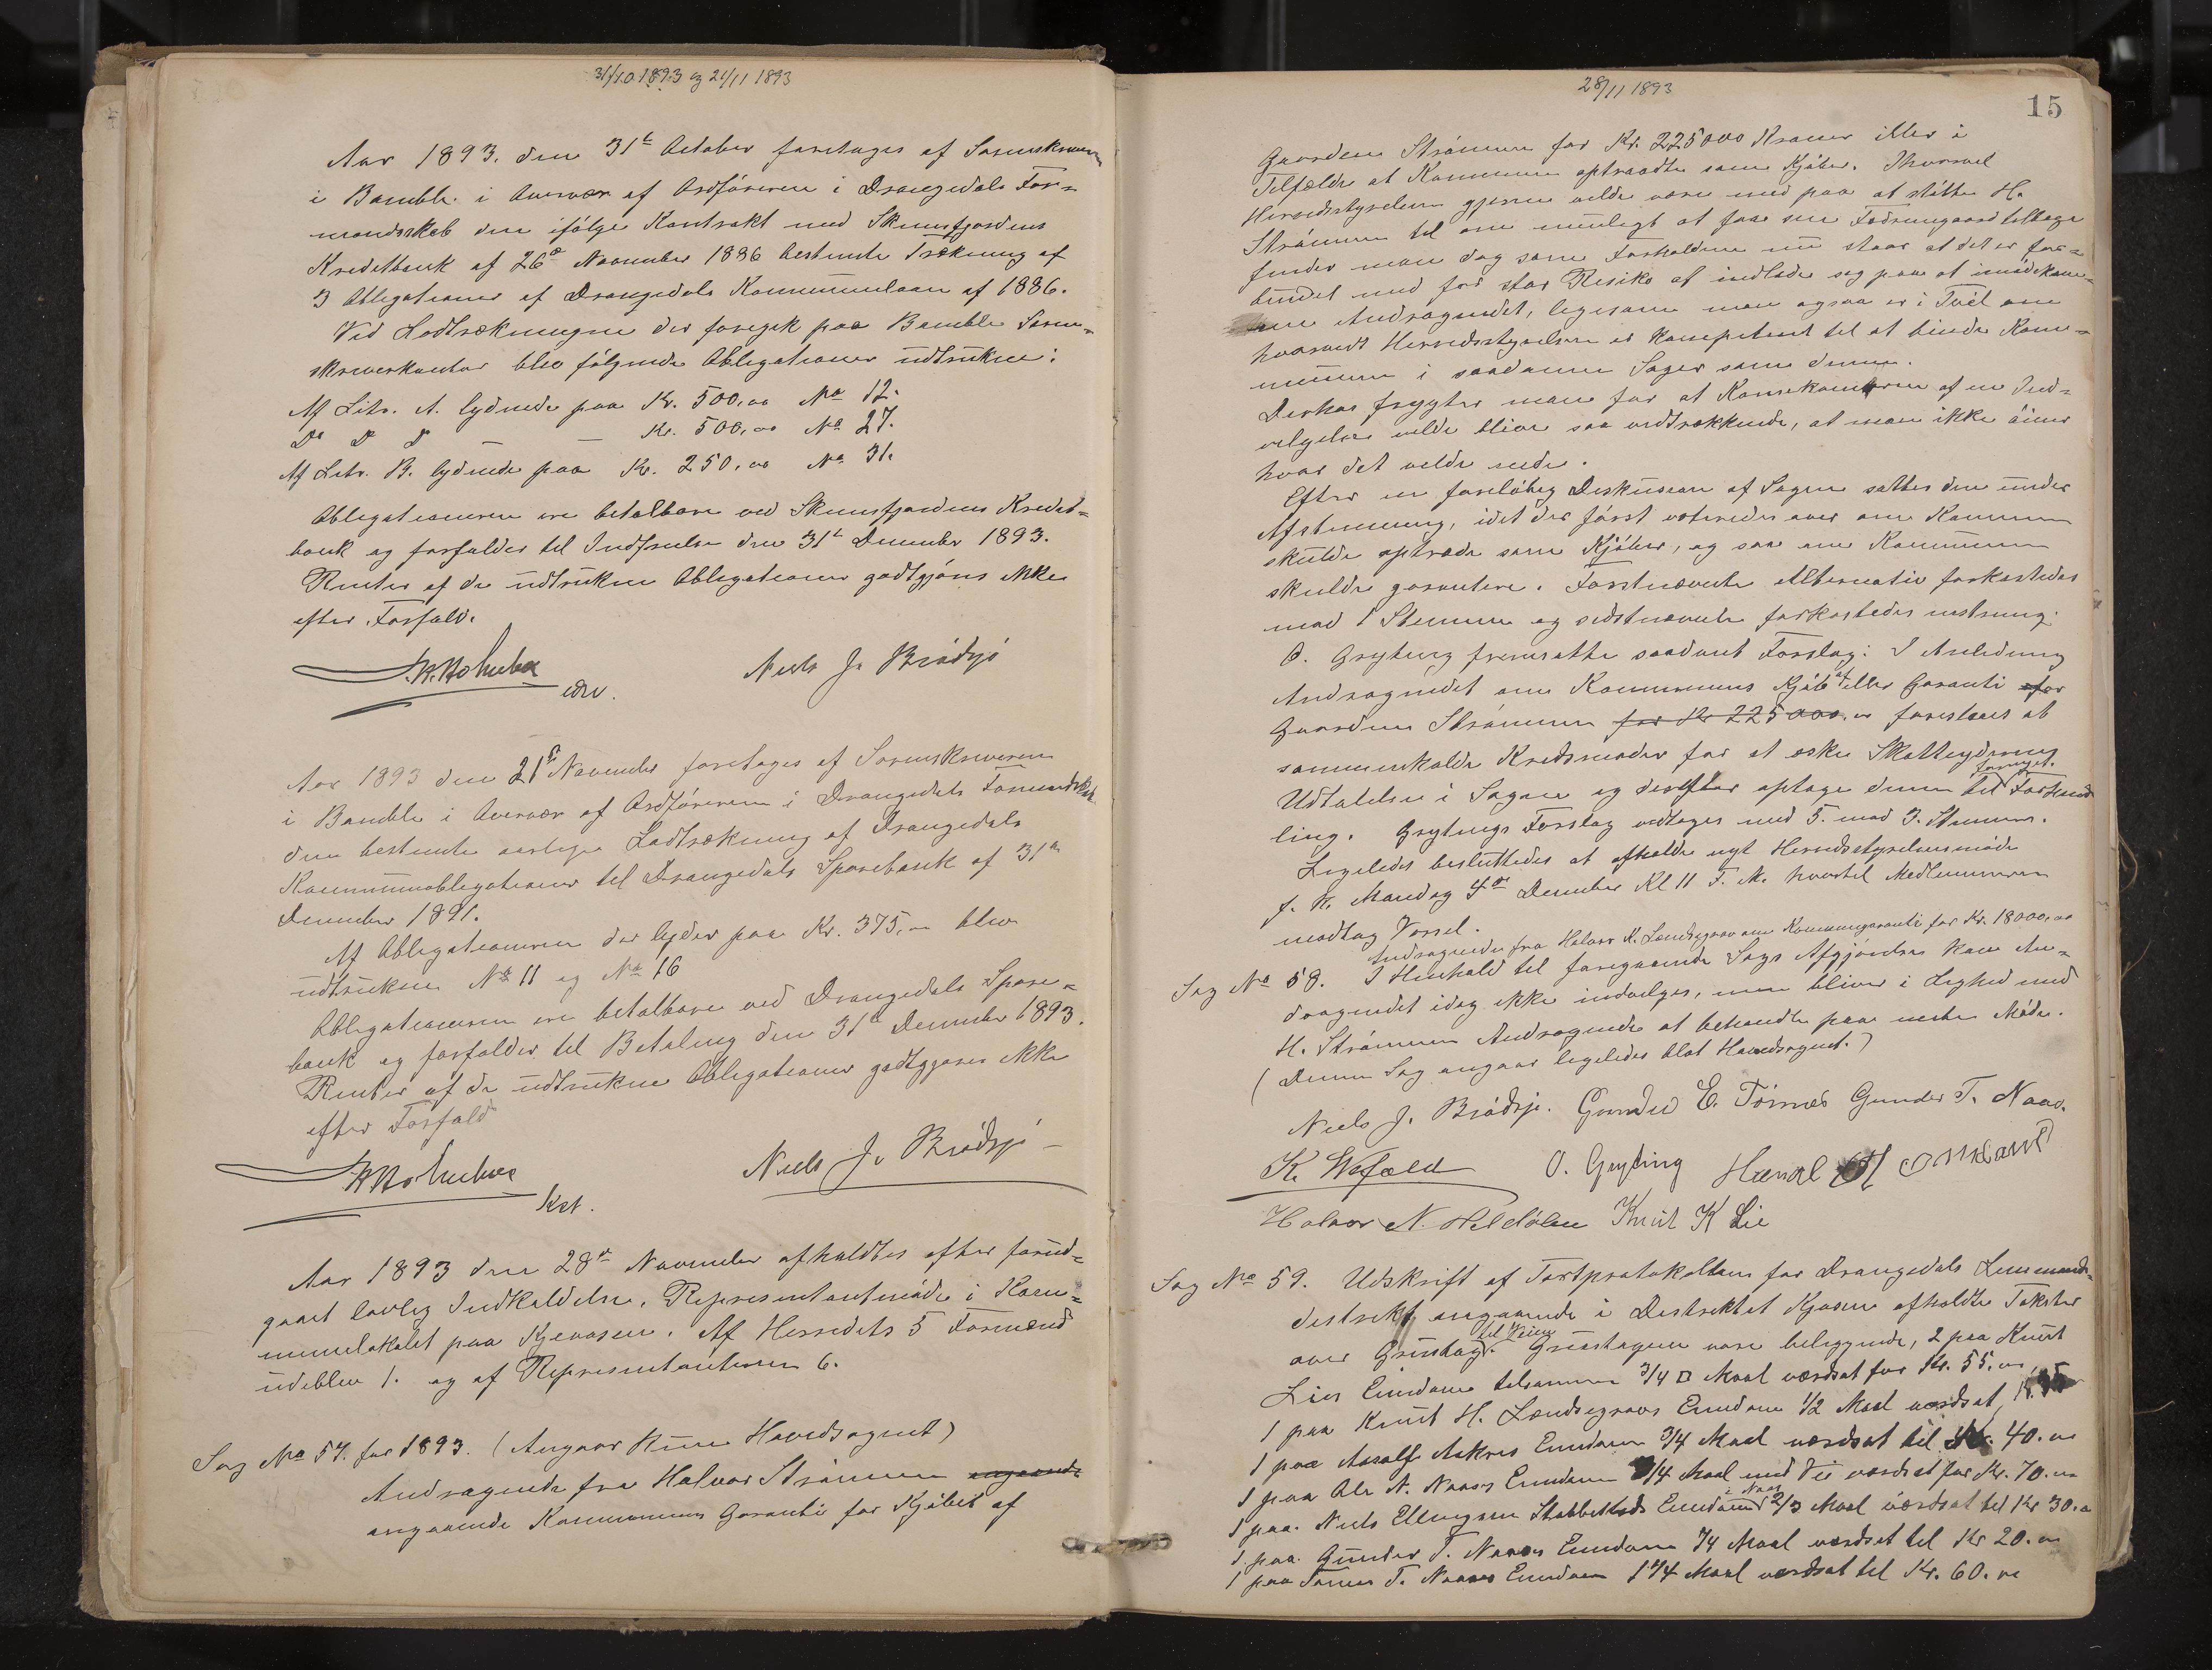 31/10 1893 og 21/11 1893
Aar 1893. den 31te October foretages af Sorenskriveren
i Bamble i Overvær af Ordføreren i Drangedals For-
mandskab den ifølge Kontrakt med Skiensfjordens
Kreditbank af 26de November 1886 bestemte Trækning af
3 Obligationer af Drangedals Kommunelaan af 1886.
Ved Lodtrækningen der foregik paa Bamble Soren-
skriverkontor blev følgende Obligationer udtrukne:
Af Litr. A. lydende paa Kr. 500,00 No 12.
Do Do D — — Kr. 500,00 No 27.
Af Litr. B. lydende paa Kr. 250,00 No 31.
Obligationerne ere betalbare ved Skiensfjordens Kredit-
bank og forfalder til Indfrielse den 31te December 1893.
Renter af de udtrukne Obligationer godtgjøres ikke
efter Forfald.
Niels J. Brødsjø
Aar 1893 den 21de November foretages af Sorenskriveren
i Bamble i Overvær af Ordføreren i Drangedals Formandskab
den bestemte aarlige Lodtrækning af Drangedals
Kommuneobligationer til Drangedals Sparebank af 31te
December 1891.
Af Obligationerne der lyder paa Kr. 375,00 blev
udtrukne No 11 og No 16
Obligationerne ere betalbare ved Drangedals Spare-
bank og forfalder til Betaling den 31te December 1893.
Renter af de udtrukne Obligationer godtgjøres ikke
efter Forfald
Niels J. Brødsjø
Kst.
Aar 1893 den 28de November afholdtes efter forud-
gaaet lovlig Indkaldelse, Repræsentantmøde i Kom-
munelokalet paa Kjeaasen. Af Herredets 5 Formænd
udeblev 1. og af Repræsentanterne 6.
Sag No 57. for 1893. (Angaar kun Hovedsognet)
Andragende fra Halvor Strømmen angaaende
angaaende Kommunens Garanti for Kjøbet af
28/11 1893
15
Gaarden Strømmen for Kr. 225000 Kroner eller i
Tilfælde at Kommunen optraadte som Kjøber. Ihvorvel
Herredsstyrelsen gjerne vilde være med paa at støtte H.
Strømmen til om muligt at faa sin Fædrenegaard tilbage
finder man dog som Forholdene nu staar at det er for-
bundet med for stor Risiko at indlade sig paa at imødekom-
me Andragendet, ligesom man ogsaa er i Tvil om
hvorvidt Herredsstyrelsen er kompetent til at binde Kom-
munen i saadanne Sager som denne.
Derhos frygter man for at Konsekventserne af en Ind-
vilgelse vilde blive saa vidtrækkende, at man ikke øiner
hvor det vilde ende.
Efter en foreløbig Diskusion af Sagen sattes den under
Afstemning, idet der først voteredes over om Kommunen
skulde optræde som Kjøber, og saa om Kommunen
skulde garantere. Førstnævnte Alternativ forkastedes
mod 1 Stemme og sidstnævnte forkastedes enstemmig.
O. Gryting fremsatte saadant Forslag: I Anledning
Andragendet om Kommunens Kjøb af eller Garanti for
Gaarden Strømmen for Kr 225000.00 foreslaaes at
sammenkalde Kredsmøder for at æske Skatteydernes
Udtalelse i Sagen og derefter optage denne til fornyet Forhand-
ling. Grytings Forslag vedtages med 5. mod 3. Stemmer.
Ligeledes besluttedes at afholde nyt Herredsstyrelsesmøde
f. K. Mandag 4de December Kl 11 F. M. hvortil Medlemmerne
modtog Varsel.
Andragende fra Halvor K. Lændsgrav om Kommunegaranti for Kr. 18000,00
Sag No 58. I Henhold til foregaaende Sags Afgjørelse kan An-
dragendet idag ikke indvilges, men bliver i Lighed med
H. Strømmen Andragende at behandle paa neste Møde.
(Denne Sag angaar ligeledes blot Hovedsognet.)
Niels J. Brødsjø. Gunder E. Tørnes Gunder T. Naas.
O. Gryting
Halvor N. Heldølen Knut K Lie
Sag No 59. Udskrift af Taxtprotokollen for Drangedals Lensmands-
distrikt angaaende i Distriktet Kjosen afholdte Takster
over Grustag til Veien. Grustagene vare beliggende, 2 paa Knut
Lies Eiendom tilsammen 3/4 □ Maal værdsat for Kr. 55.00,
1 paa Knut H. Lændsgravs Eiendom 1/2 Maal værdsat, K. 35
1 paa Aasulf Aakres Eiendom 3/4 Maal værdsat til Kr. 40.00
1 paa Ole N. Naas's Eiendom 3/4 Maal med Vei værdsat for Kr. 70.00
1 paa Niels Ellingsen Stabbestads Eiendom i Naas 2/3 Maal værdsat til Kr 30.00
1 paa Gunder T. Naases Eiendom 1/4 Maal værdsat til Kr 20.00
1 paa Tomes T. Naases Eiendom 1 1/4 Maal værdsat til Kr. 60.00